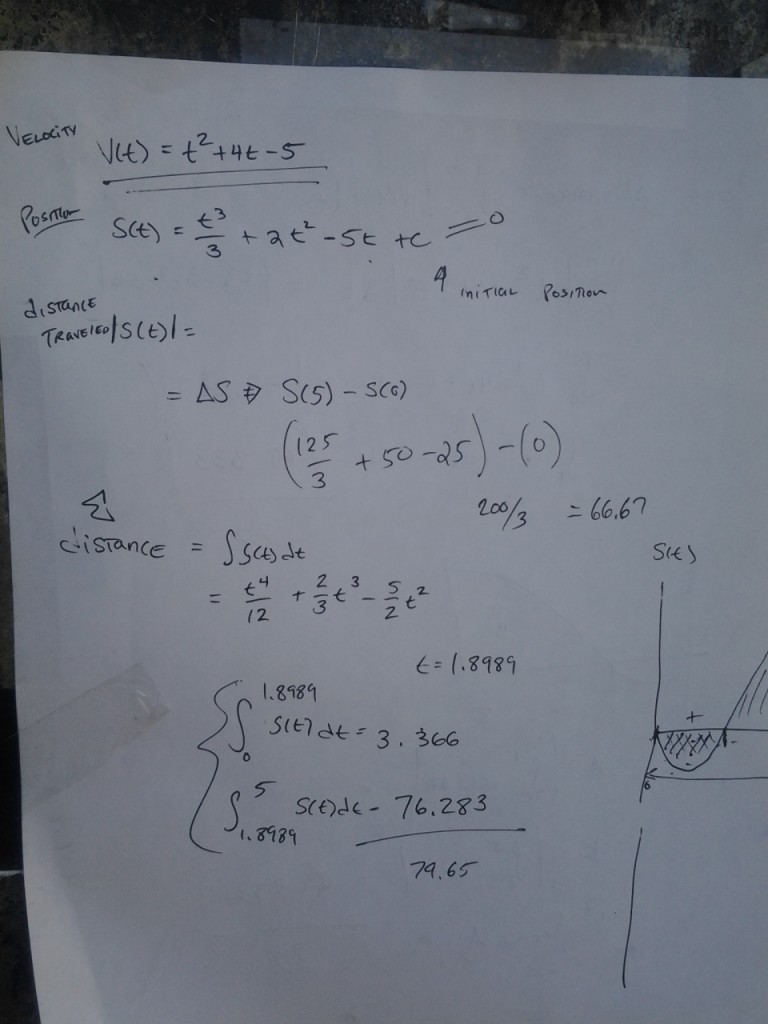 VELOCITY V(t) = t² + 4t - 5
POSITION S(t) = t³/3 + 2t² - 5t + c = 0
INITIAL POSITION
distance
TRAVELED |S(t)| =
= ΔS ⇒ S(5) - S(0)
(125/3 + 50 - 25) - (0)
200/3 = 66.67
distance = ∫ S(t) dt
= t⁴/12 + 2/3 t³ - 5/2 t²
t = 1.8989
∫₀^1.8989 S(t) dt = 3.366
∫1.8989^5 S(t) dt - 76.283
79.65
S(t)
+
-